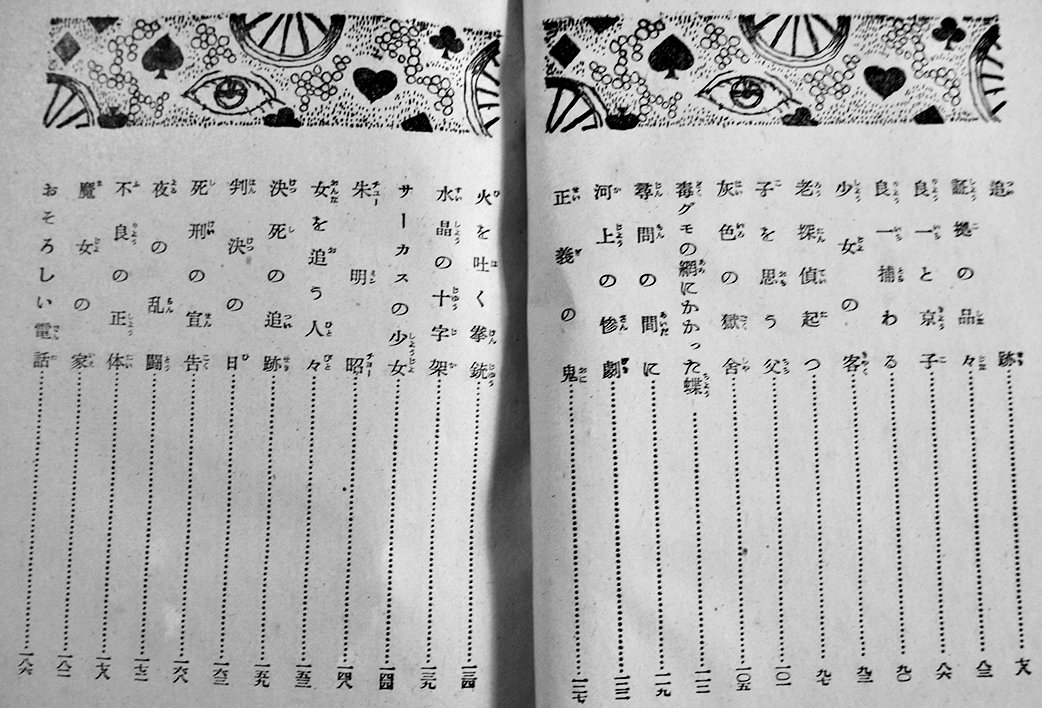 追跡……七八
証拠の品々……八三
良一と京子……八六
良一捕わる……九〇
少女の客……九三
老探偵起つ……九七
子を思う父……一〇一
灰色の獄舎……一〇五
毒グモの網にかかった蝶……一一二
尋問の間に……一一九
河上の惨劇……一二三
正義の鬼……一二七
火を吐く拳銃……一三四
水晶の十字架……一三九
サーカスの少女……一四四
朱明昭……一四八
女を追う人々……一五三
決死の追跡……一五九
判決の日……一六三
死刑の宣告……一六八
夜の乱闘……一七三
不良の正体……一七八
魔女の家……一八二
おそろしい電話……一八六